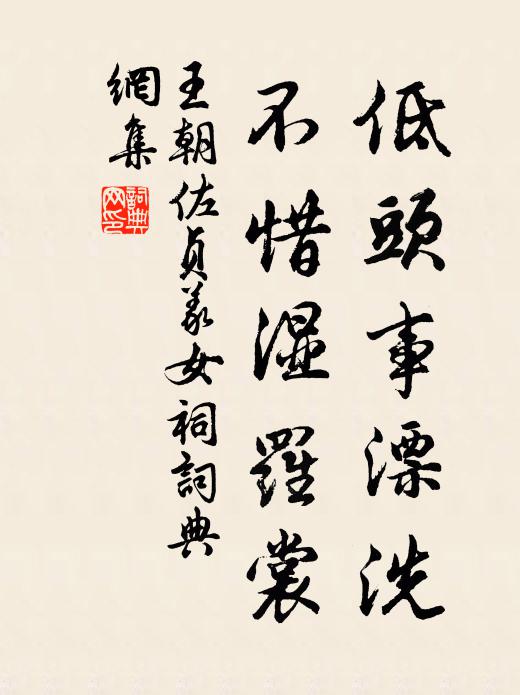 低頭事漂洗
不惜濕羅裳
王朝佐貞義女祠詞典
網集
詞典網印